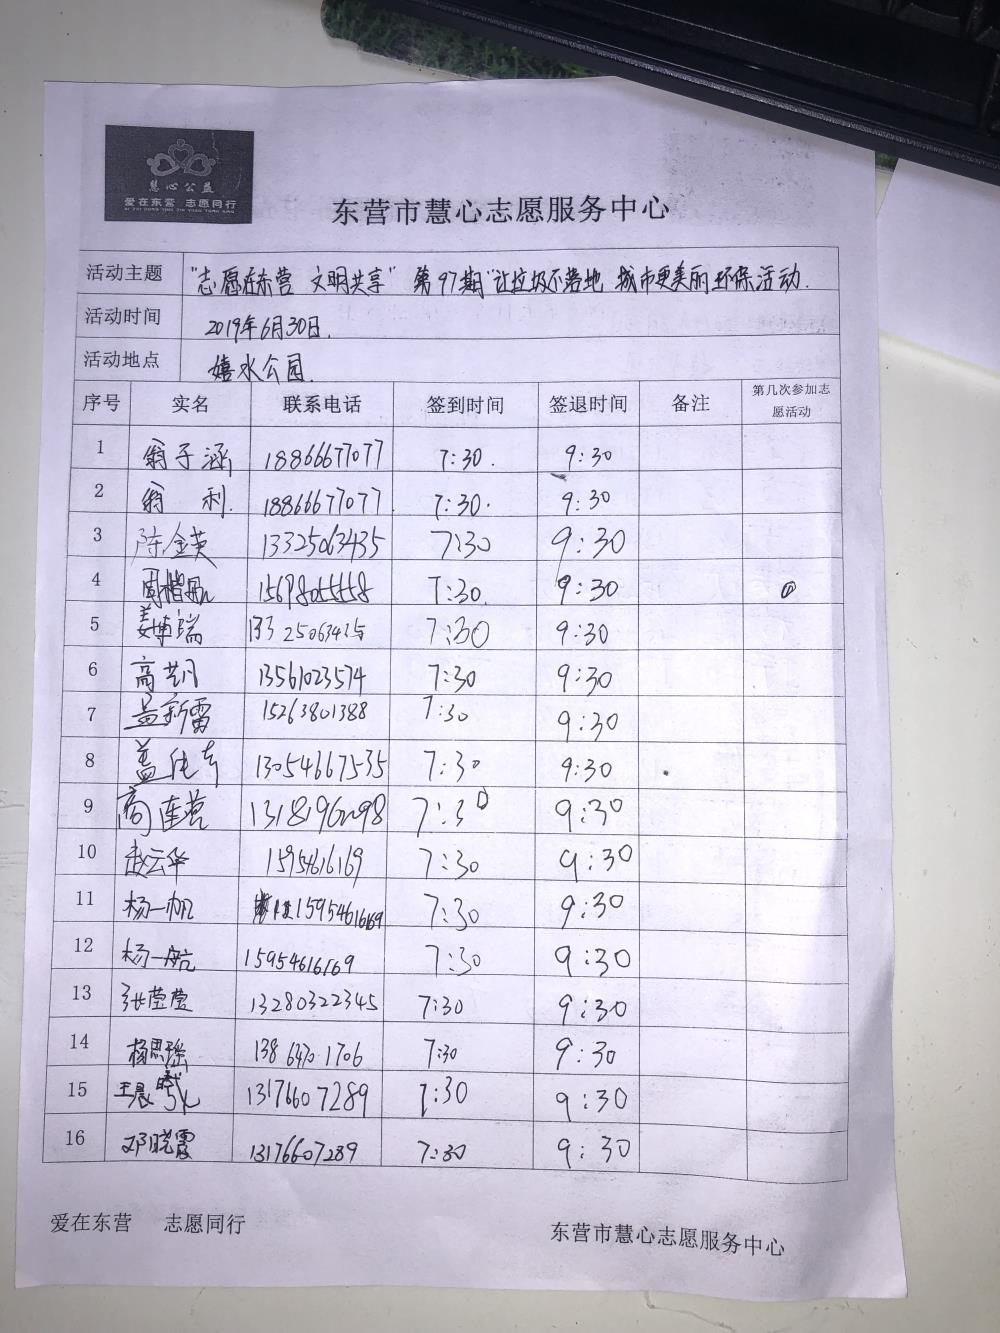 慧心公益
爱在东营 志愿同行
AI ZAI DONG YING ZHI YUAN TONG XING
东营市慧心志愿服务中心
活动主题 "志愿在东营 文明共享" 第97期"让垃圾不落地 城市更美丽环保活动.
活动时间 2019年6月30日.
活动地点 嬉水公园.
序号 实名 联系电话 签到时间 签退时间 备注 第几次参加志愿活动
1 翁子涵 18866677077 7:30. 9:30
2 翁利. 18866677077. 7:30. 9:30
3 陈金英 13325063435 7:30 9:30
4 7:30. 9:30
5 姜博瑞 7:30 9:30
6 高 13561023574 7:30 9:30
7 孟新雷 15263801388 7:30 9:30
8 盖 13054667535 7:30 9:30
9 高连营 7:30 9:30
10 赵云华 15954616169 7:30 9:30
11 杨一帆 15954616169 7:30 9:30
12 杨一航 15954616169 7:30 9:30
13 张莹莹 13280322345 7:30 9:30
14 杨思瑶 138 6470 1706 7:30 9:30
15 王晨 13176607289 7:30 9:30
16 邓晓霞 13176607289 7:30 9:30
爱在东营 志愿同行
东营市慧心志愿服务中心